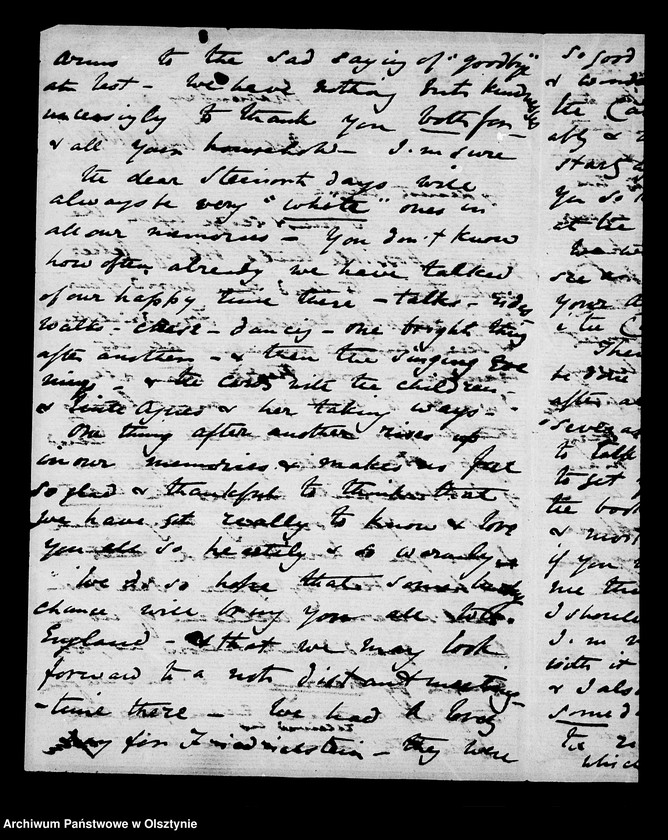 arms to the sad saying of "goodbye"
at last - We have nothing but kindnesses
unceasingly to thank you both for -
& all your household - I'm sure
the dear Steinort days will
always be very "white" ones in
all our memories - You don't know
how often already we have talked
of our happy time there - talks - rides
walks - chess - dancing - one bright thing
after another - & then the singing Eve
nings - & the cards with the children -
& little Agnes & her taking ways -
One thing after another rises up
in our memories & makes us feel
so glad & thankful to think that
we have got really to know & love
you all so heartily & so warmly
We do so hope that some lucky
chance will bring you all to
England - & that we may look
forward to a not distant meeting
-time there - We had a lovely
day for Friedrichstein - they were
so good
&
the
ably &
start
you so
at the
we w
see
your
the
Then
be
after
several
to talk
to get
the book
& most
if you
me
I should
I'm
with it
& I also
some
the
which
Archiwum Państwowe w Olsztynie